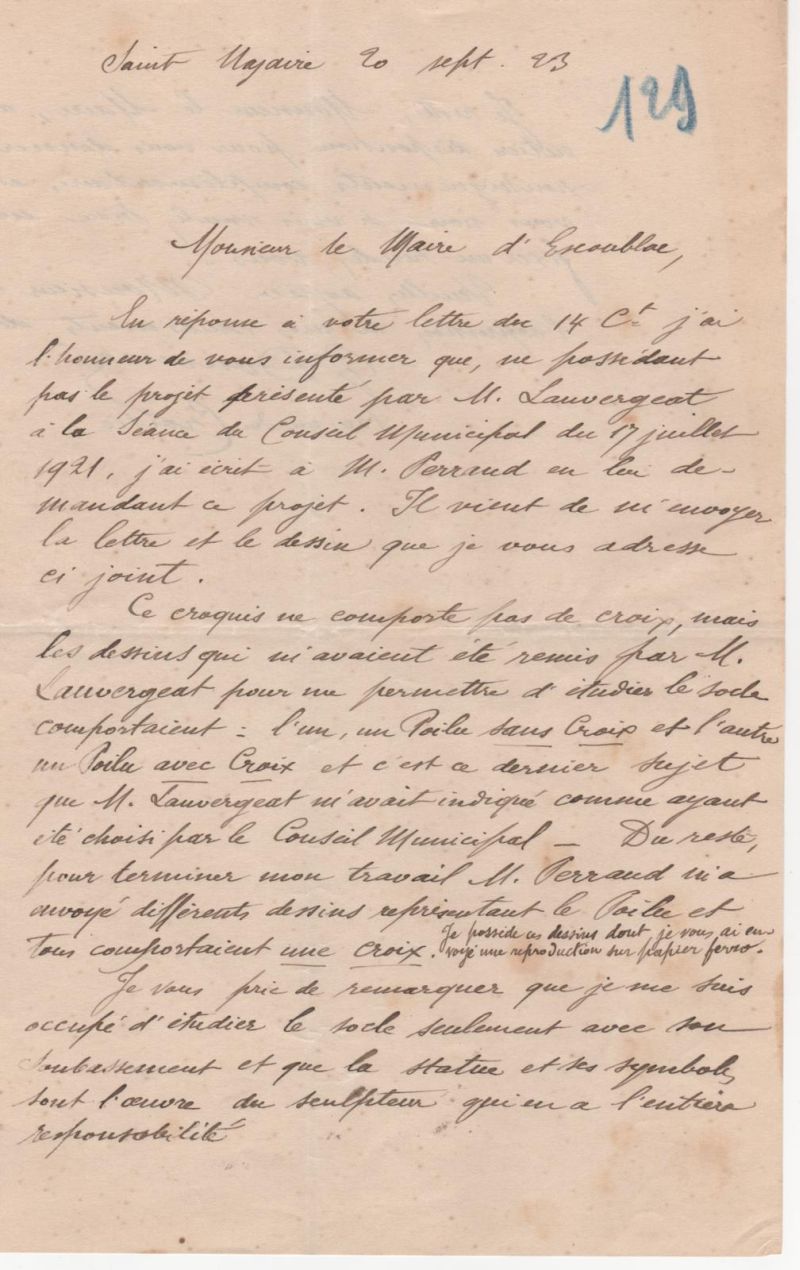 Saint Nazaire 20 sept. 23
129
Monsieur le Maire d'Escoublac,
En réponse à votre lettre du 14 Ct. j'ai
l'honneur de vous informer que, ne possédant
pas le projet présenté par M. Lauvergeat
à la Séance du Conseil Municipal du 17 juillet
1921, j'ai écrit à M. Perraud en lui de-
mandant ce projet. Il vient de m'envoyer
la lettre et le dessin que je vous adresse
ci joint.
Ce croquis ne comporte pas de croix, mais
les dessins qui m'avaient été remis par M.
Lauvergeat pour me permettre d'étudier le socle
comportaient : l'un, un Poilu sans Croix et l'autre
un Poilu avec Croix et c'est ce dernier sujet
que M. Lauvergeat m'avait indiqué comme ayant
été choisi par le Conseil Municipal – Du reste,
pour terminer mon travail M. Perraud m'a
envoyé différents dessins représentant le Poilu et
tous comportaient une croix. Je possède ces dessins dont je vous ai en-
voyé une reproduction sur papier ferro.
Je vous prie de remarquer que je me suis
occupé d'étudier le socle seulement avec son
soubassement et que la statue et ses symboles
sont l'œuvre du sculpteur qui en a l'entière
responsabilité